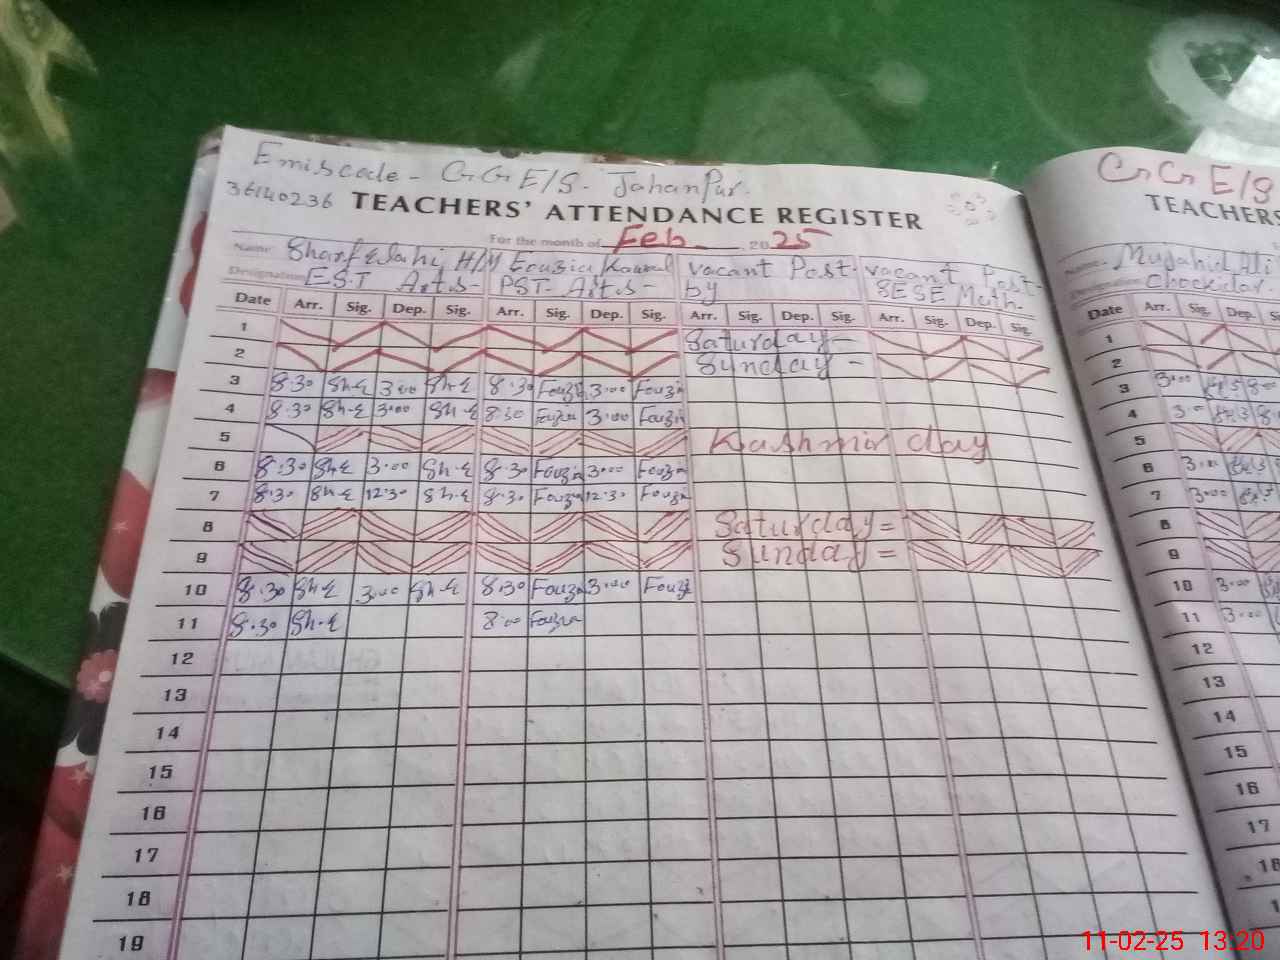 Emiscode - GGE/S. Jahanpur.
36140236
TEACHERS' ATTENDANCE REGISTER
For the month of Feb 2025
Name H/M Fouzia vacant Post. vacant Post-
Designation EST Arts- PST- Arts- by SESE Math-
Date Arr. Sig. Dep. Sig. Arr. Sig. Dep. Sig. Arr. Sig. Dep. Sig. Arr. Sig. Dep. Sig.
1 Saturday =
2 Sunday =
3 8.30 Sh-E 3.00 Sh-E 8.30 Fouzia 3.00 Fouzia
4 8.30 Sh-E 3.00 Sh-E 8.30 Fouzia 3.00 Fouzia
5 Kashmir day
6 8.30 Sh-E 3.00 Sh-E 8.30 Fouzia 3.00 Fouzia
7 8.30 Sh-E 12.30 Sh-E 8.30 Fouzia 12.30 Fouzia
8 Saturday =
9 Sunday =
10 8.30 Sh-E 3.00 Sh-E 8.30 Fouzia 3.00 Fouzi
11 8.30 Sh-E 8.00 Fouzia
12
13
14
15
16
17
18
19
GGE/S
TEACHERS
Name. Mujahid Ali
Designation Chockidar.
Date Arr. Sig. Dep.
1
2
3 3.00
4 3.00
5
6 3.00
7 3.00
8
9
10 3.00
11 3.00
12
13
14
15
16
17
18
11-02-25 13:20